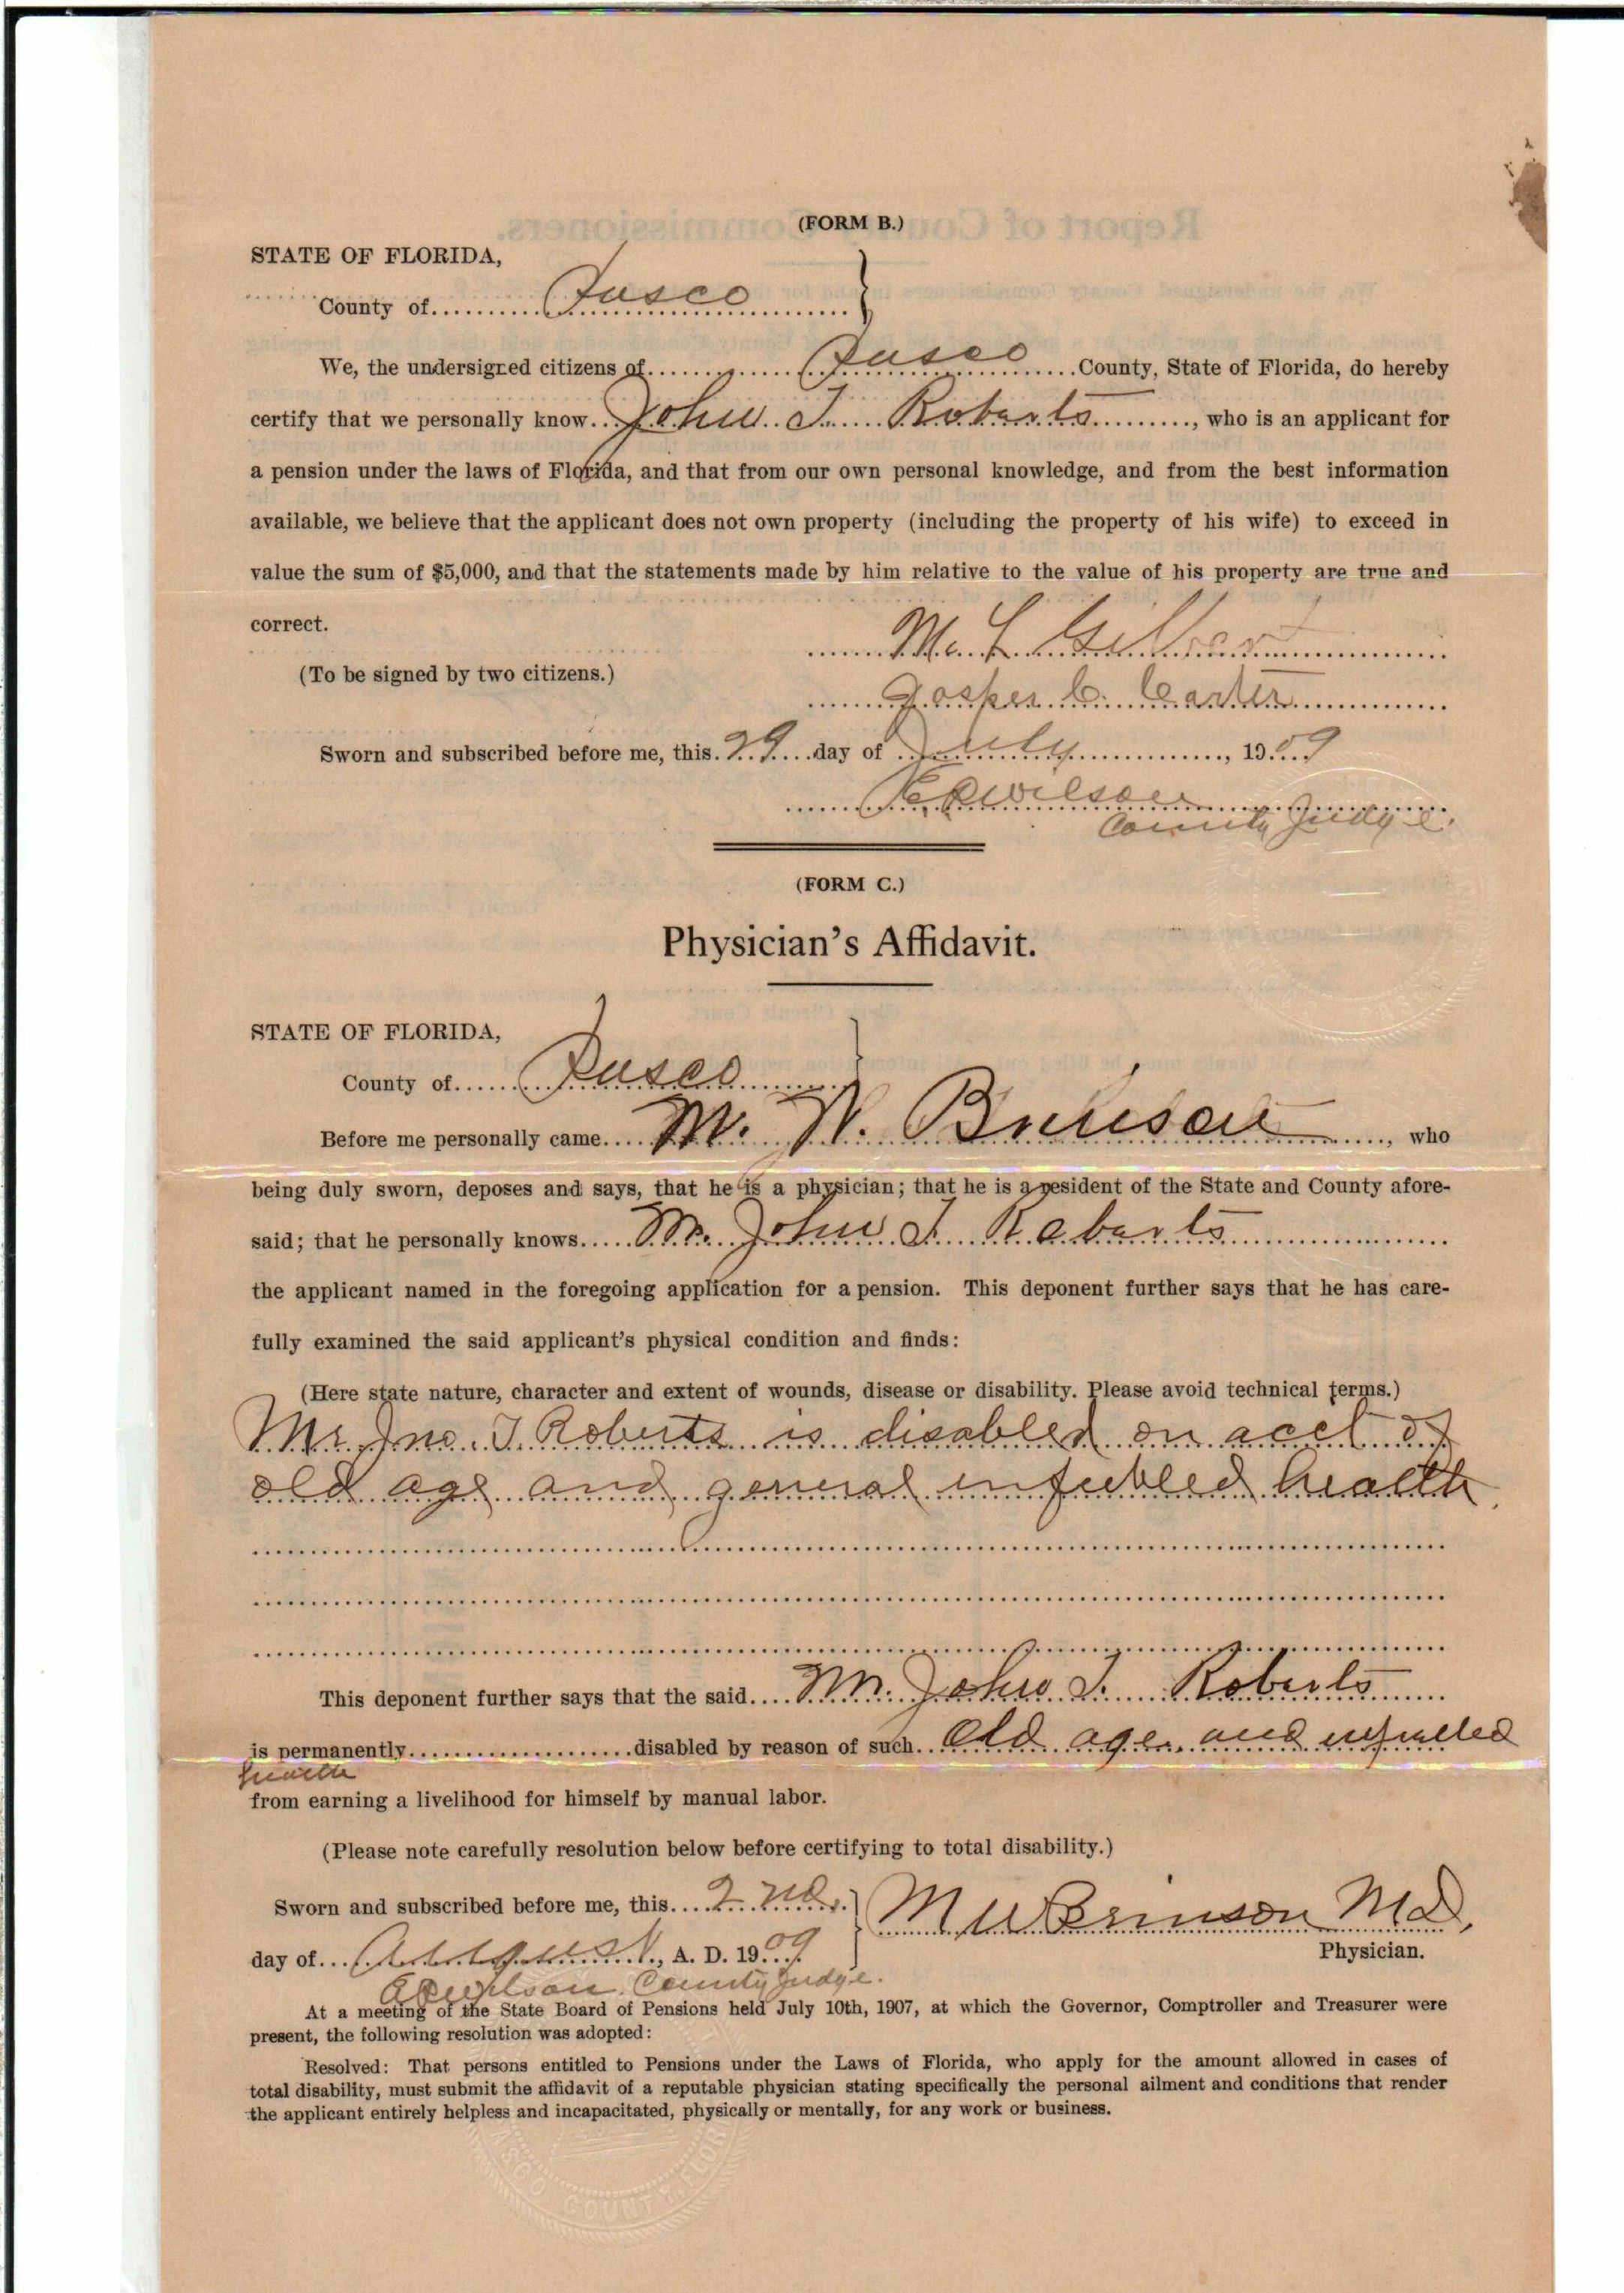 (FORM B.)
STATE OF FLORIDA,
County of Pasco
We, the undersigned citizens of Pasco County, State of Florida, do hereby
certify that we personally know John T. Roberts, who is an applicant for
a pension under the laws of Florida, and that from our own personal knowledge, and from the best information
available, we believe that the applicant does not own property (including the property of his wife) to exceed in
value the sum of $5,000, and that the statements made by him relative to the value of his property are true and
correct.
M. L. Gilbert
(To be signed by two citizens.)
Jasper C. Carter
Sworn and subscribed before me, this 29 day of July, 1909
Wilson
County Judge.
(FORM C.)
Physician's Affidavit.
STATE OF FLORIDA,
County of Pasco
Before me personally came M. W. Brinson, who
being duly sworn, deposes and says, that he is a physician; that he is a resident of the State and County afore-
said; that he personally knows Mr. John T. Roberts
the applicant named in the foregoing application for a pension. This deponent further says that he has care-
fully examined the said applicant's physical condition and finds:
(Here state nature, character and extent of wounds, disease or disability. Please avoid technical terms.)
Mr Jno. T. Roberts is disabled on acct of
old age and general infeebled health.
This deponent further says that the said Mr. John T. Roberts
is permanently disabled by reason of such Old age and infeebled
health
from earning a livelihood for himself by manual labor.
(Please note carefully resolution below before certifying to total disability.)
Sworn and subscribed before me, this 2nd M W Brinson MD,
day of August, A. D. 1909 Physician.
Wilson County Judge.
At a meeting of the State Board of Pensions held July 10th, 1907, at which the Governor, Comptroller and Treasurer were
present, the following resolution was adopted:
Resolved: That persons entitled to Pensions under the Laws of Florida, who apply for the amount allowed in cases of
total disability, must submit the affidavit of a reputable physician stating specifically the personal ailment and conditions that render
the applicant entirely helpless and incapacitated, physically or mentally, for any work or business.